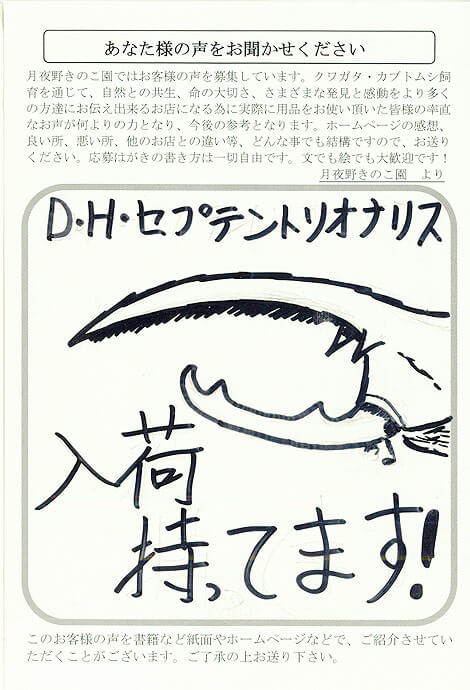 あなた様の声をお聞かせください
月夜野きのこ園ではお客様の声を募集しています。クワガタ・カブトムシ飼
育を通じて、自然との共生、命の大切さ、さまざまな発見と感動をより多く
の方達にお伝え出来るお店になる為に実際に用品をお使い頂いた皆様の率直
なお声が何よりの力となり、今後の参考となります。ホームページの感想、
良い所、悪い所、他のお店との違い等、どんな事でも結構ですので、お送り
ください。応募はがきの書き方は一切自由です。文でも絵でも大歓迎です！
月夜野きのこ園　より
D・H・セプテントリオナリス
入荷
持ってます!
このお客様の声を書籍など紙面やホームページなどで、ご紹介させてい
ただくことがございます。ご了承の上お送り下さい。